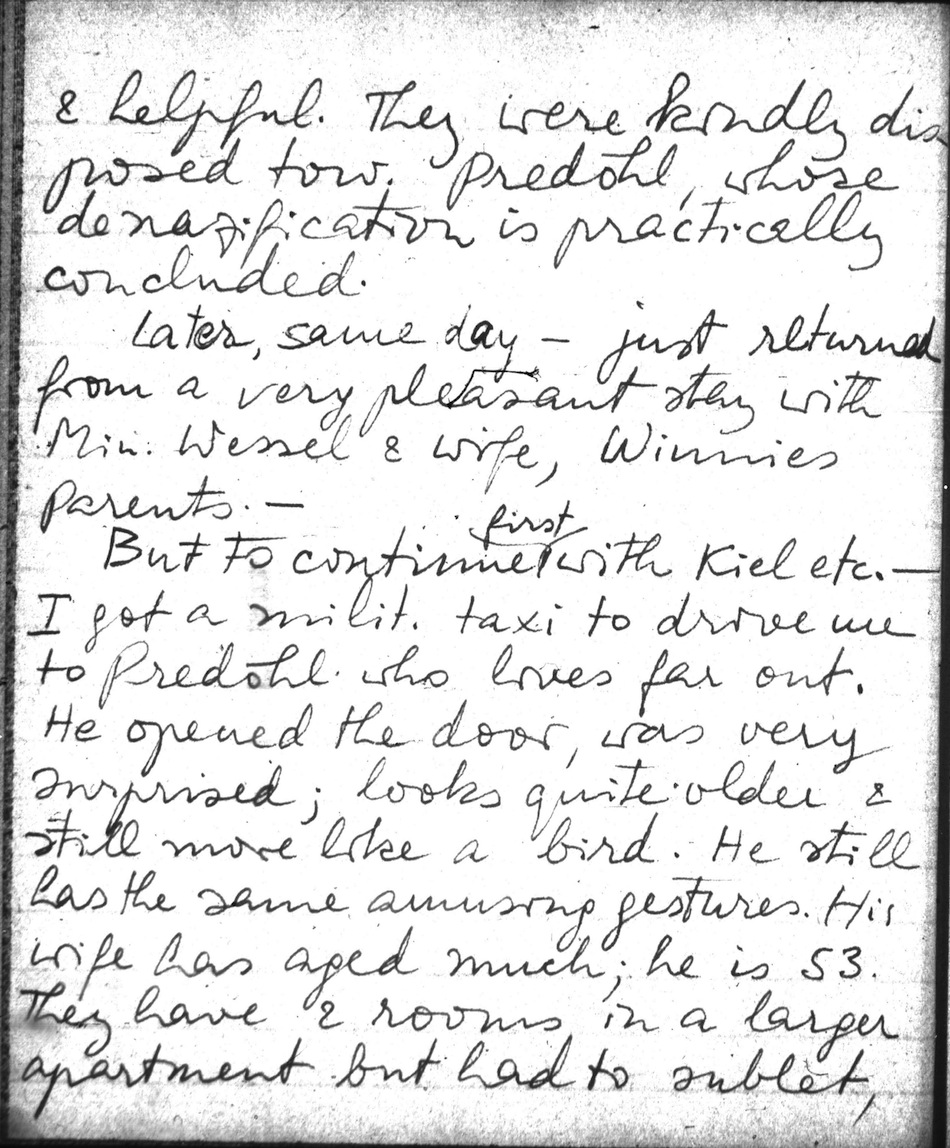 & helpful. They were kindly dis
posed tow. Predöhl, whose
denazification is practically
concluded.
Later, same day – just returned
from a very pleasant stay with
Min. Wessel & wife, Winnies
parents. –
first
But to continue with Kiel etc. –
I got a milit. taxi to drive me
to Predöhl who lives far out.
He opened the door, was very
surprised; looks quite older &
still more like a bird. He still
has the same amusing gestures. His
wife has aged much; he is 53.
They have 2 rooms in a larger
apartment but had to sublet,